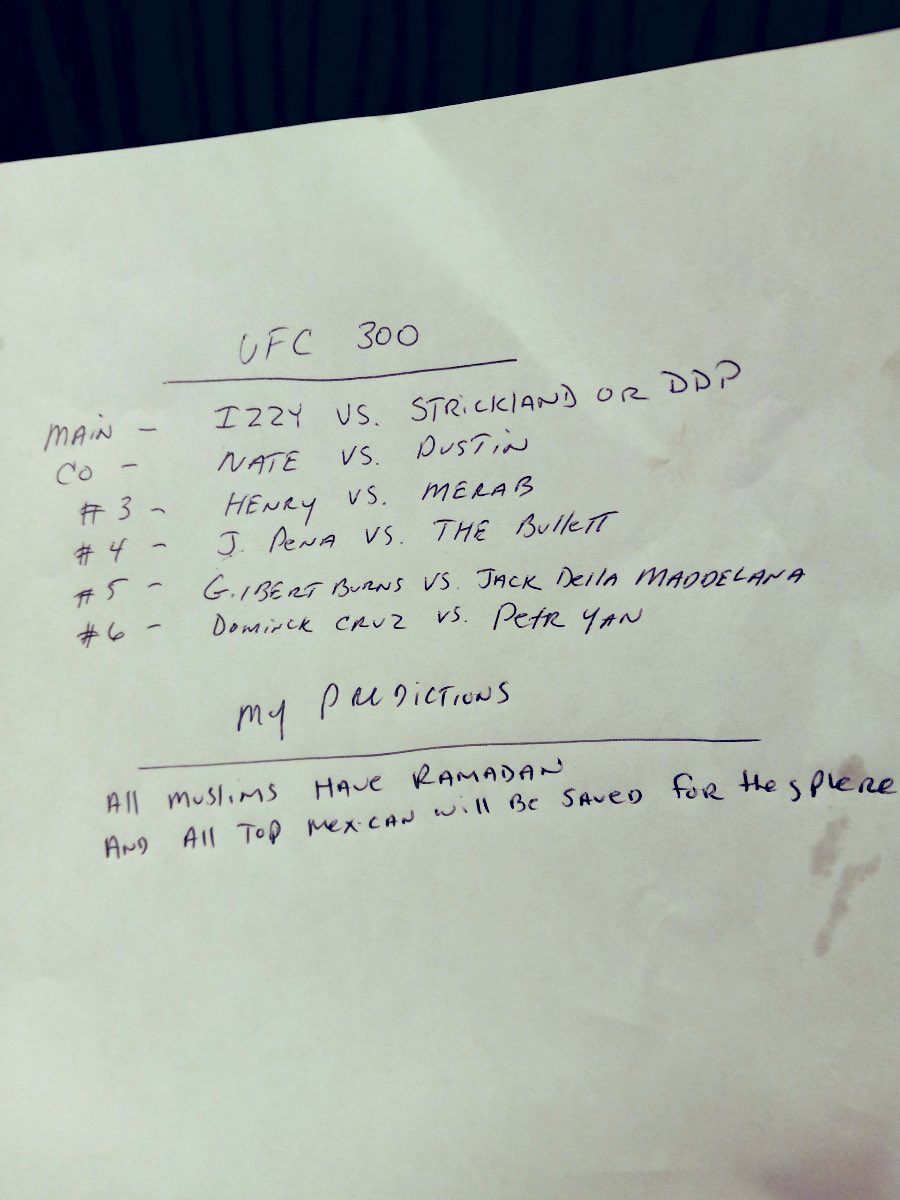 UFC 300
MAIN - IZZY VS. STRICKLAND OR DDP
CO - NATE VS. DUSTIN
#3 - HENRY VS. MERAB
#4 - J. PENA VS. THE BullETT
#5 - GilBERT BURNS VS. JACK DEllA MADDELANA
#6 - DominICK CRUZ VS. PETR YAN
My PREDICTIONS
All MUSLIMS HAVE RAMADAN
AND All TOP MEXiCAN will BE SAVED FOR the SPHERE